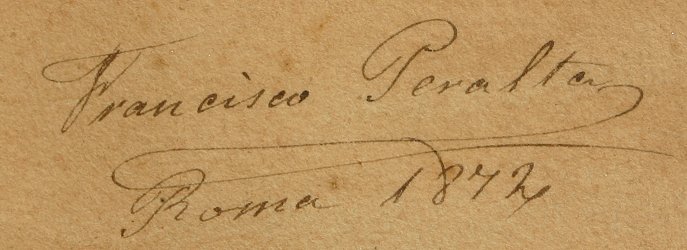 Francisco Peralta
Roma 1872